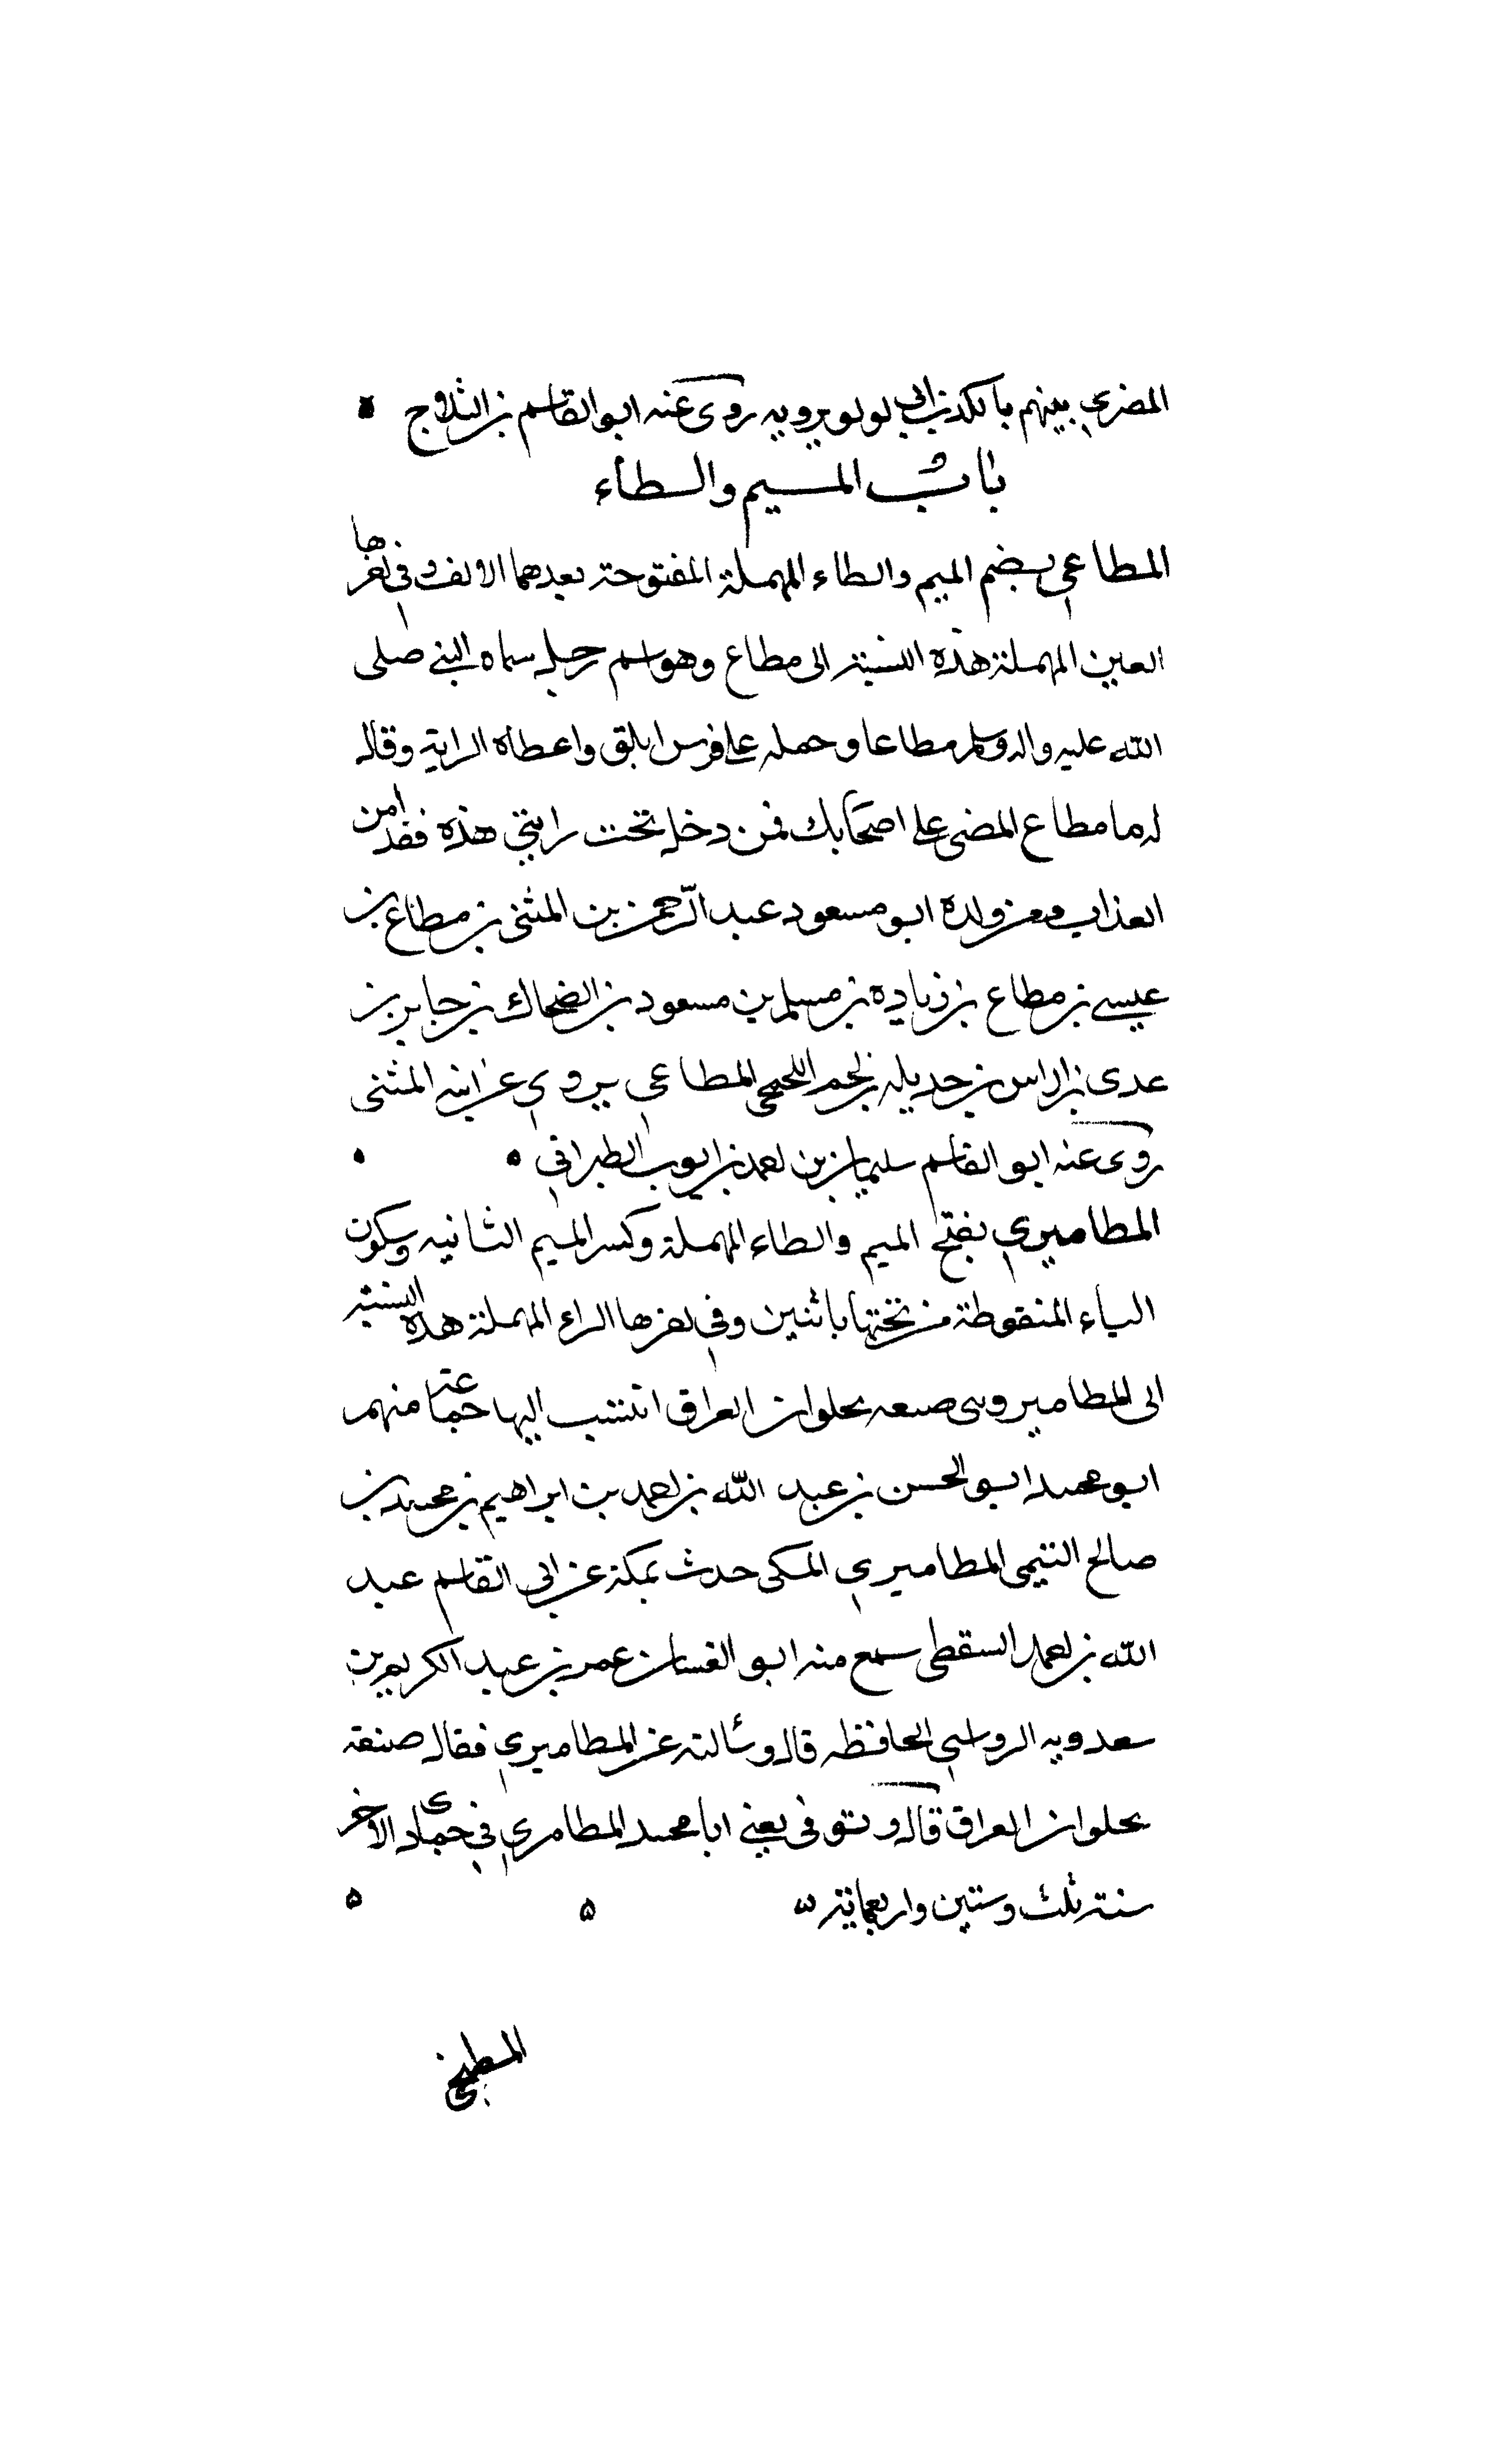 المضري بينهم بالكذب ابي لولو يرويه روى عنه ابو القاسم بن الثلاج
باب الميم والطاء
المطاعي بضم الميم والطاء المهملة المفتوحة بعدهما الالف وفي اخرها
العين المهملة هذه النسبة الى مطاع وهو اسم رجل سماه النبي صلى
الله عليه واله وسلم مطاعا وحمله على فرس ابلق واعطاه الراية وقال
له يا مطاع امضي على اصحابك فمن دخل تحت رايتي هذه فقد امن
العذاب ومن ولده ابو مسعود عبد الرحمن بن المثنى بن مطاع بن
عيسى بن مطاع بن زياده بن مسلم بن مسعود بن الضحاك بن جابر بن
عدى بن اراس بن جديله بن لخم اللخمي المطاعي يروي عن ابيه المثنى
روى عنه ابو القاسم سليمان بن احمد بن ايوب الطبراني
المطاميري بفتح الميم والطاء المهملة وكسر الميم الثانيه وسكون
الياء المنقوطة من تحتها باثنين وفي اخرها الراء المهملة هذه النسبة
الى المطامير وهى صيعه بحلوان العراق انتسب اليها جماعة منهم
ابو محمد ابو الحسن بن عبد الله بن احمد بن ابراهيم بن محمد بن
صالح التيمى المطاميري المكى حدث بمكة عن ابي القاسم عبد
الله بن احمد السقطى سمع منه ابو الفسان عمر بن عبد الكريم بن
سعدويه الرواسي الحافظ قال وسالته عن المطاميري فقال صنيقه
بحلوان العراق قال وتوفى يعني ابا محمد المطامري في جمادى الاخر
سنة ثلث وستين واربعماية
المطبخي